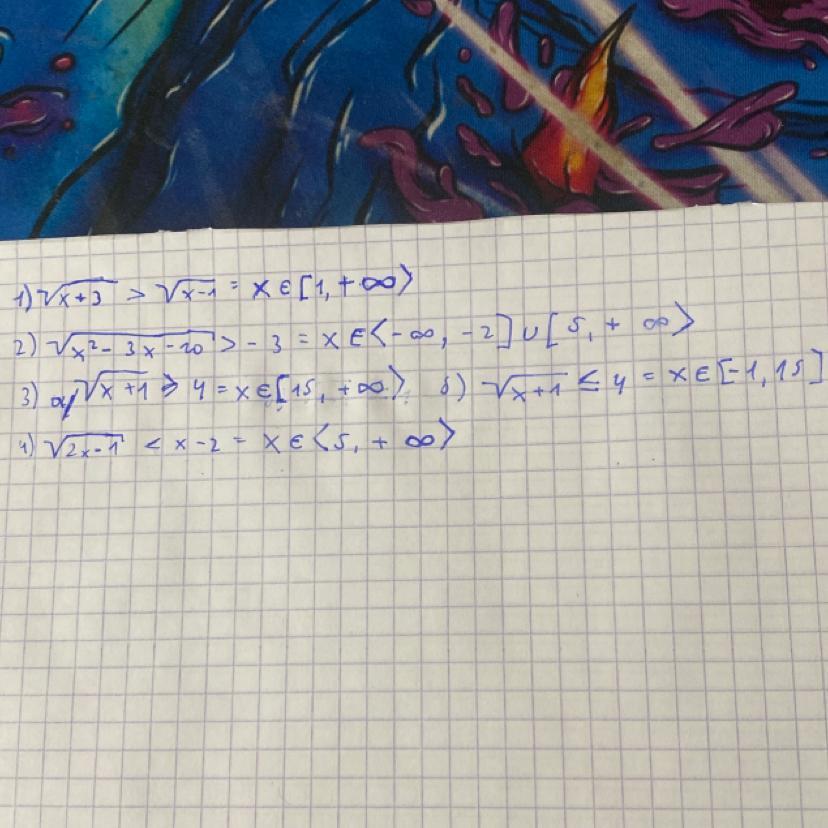 1) √x+3 > √x-1 = x ∈ [1, +∞⟩
2) √x² - 3x - 10 > - 3 = x ∈ ⟨-∞, -2] ∪ [5, + ∞⟩
3) a) √x+1 ≥ 4 = x ∈ [15, +∞⟩, б) √x+1 ≤ 4 = x ∈ [-1, 15]
4) √2x-1 < x-2 = x ∈ ⟨5, + ∞⟩